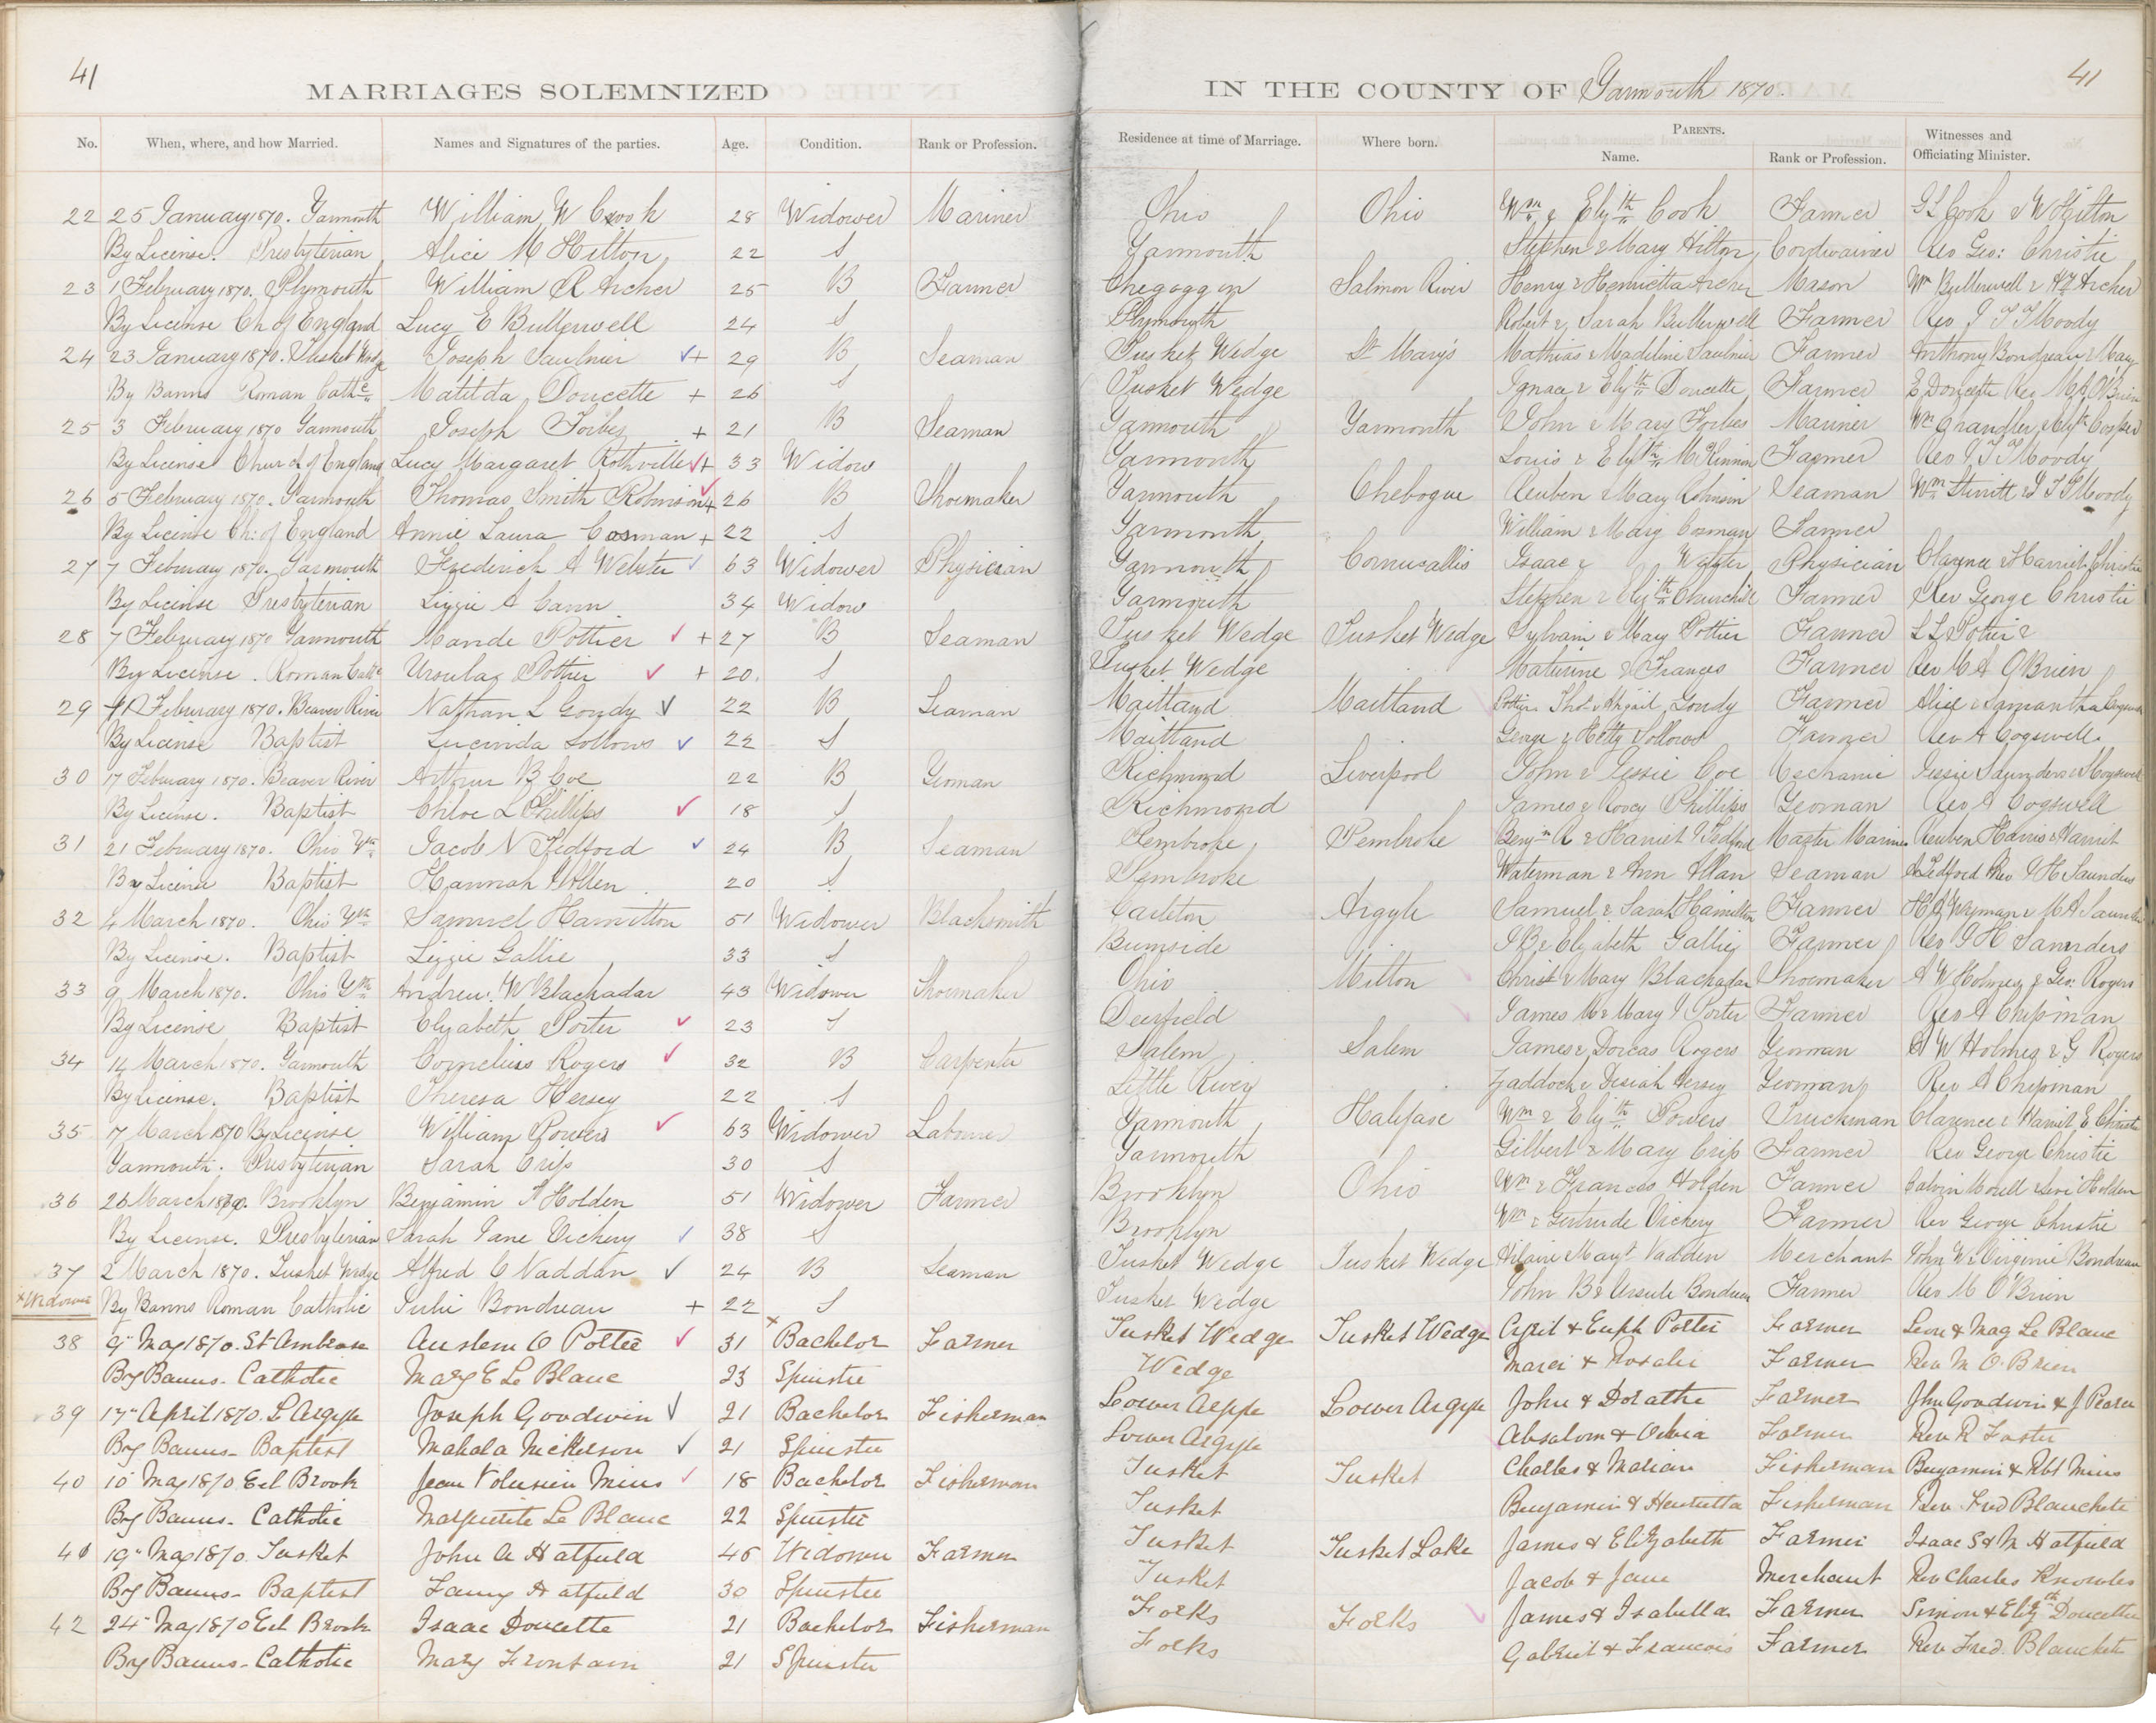 41
MARRIAGES SOLEMNIZED
IN THE COUNTY OF Yarmouth 1870.
41
No. When, where, and how Married. Names and Signatures of the parties. Age. Condition. Rank or Profession. Residence at time of Marriage. Where born. PARENTS. Name. Rank or Profession. Witnesses and Officiating Minister.
22 25 January 1870. Yarmouth William W Cook 28 Widower Mariner Ohio Ohio Wm & Elizth Cook Farmer G L Cook & W Hilton
By License. Presbyterian Alice M Hilton 22 S Yarmouth Stephen & Mary Hilton Cordwainer Rev Geo: Christie
23 1 February 1870. Plymouth William R Archer 25 B Farmer Chegoggin Salmon River Henry & Henrietta Archer Mason Wm Butlerwell & Archer
By License Ch of England Lucy E Butlerwell 24 S Plymouth Robert & Sarah Butlerwell Farmer Rev J T T Moody
24 23 January 1870. Tusket Wedge Joseph Saulnier + 29 B Seaman Tusket Wedge St Mary's Mathias & Madeline Saulnier Farmer Anthony Boudreau & Mary
By Banns Roman Cathc Matilda Doucette + 26 S Tusket Wedge Ignace & Elizth Doucette Farmer E Doucette Rev M A O'Brien
25 3 February 1870 Yarmouth Joseph Forbes + 21 B Seaman Yarmouth Yarmouth John & Mary Forbes Mariner Wm Chandler & Elizth Cooper
By License Church of England Lucy Margaret Rothville + 33 Widow Yarmouth Louis & Elizth McKinnon Farmer Rev J T T Moody
26 5 February 1870. Yarmouth Thomas Smith Robinson + 26 B Shoemaker Yarmouth Chebogue Reuben & Mary Robinson Seaman Wm Sterritt & J T T Moody
By License Ch: of England Annie Laura Cosman + 22 S Yarmouth William & Mary Cosman Farmer
27 7 February 1870. Yarmouth Frederick A Webster 63 Widower Physician Yarmouth Cornwallis Isaac & Webster Physician Clarence & Harriet Christie
By License Presbyterian Lizzie A Cann 34 Widow Yarmouth Stephen & Elizth Churchill Farmer Rev George Christie
28 7 February 1870 Yarmouth Mande Pottier + 27 B Seaman Tusket Wedge Tusket Wedge Sylvain & Mary Pottier Farmer L L Potier &
By License. Roman Cathc Ursula Pottier + 20. S Tusket Wedge Maturine & Frances Farmer Rev M A O'Brien
29 February 1870. Beaver River Nathan L Goudy 22 B Seaman Maitland Maitland Pottier Thos & Abigail Goudy Farmer Alice & Samantha
By License Baptist Lucinda Sollows 22 S Maitland George & Hetty Sollows Farmer Rev A Cogswell.
30 17 February 1870. Beaver River Arthur B Coe 22 B Yeoman Richmond Liverpool John & Jessie Coe Mechanic Jessie Saunders & Cogswell
By License. Baptist Chloe L Phillips 18 S Richmond James & Phillips Yeoman Rev A Cogswell
31 21 February 1870. Ohio Yth Jacob N Tedford 24 B Seaman Pembroke Pembroke Benjn R & Harriet Tedford Master Mariner Reuben Harris & Harriet
By License Baptist Hannah Allen. 20 S Pembroke Waterman & Ann Allan Seaman A Tedford Rev J H Saunders
32 4 March 1870. Ohio Yth Samuel Hamilton 51 Widower Blacksmith Carleton Argyle Samuel & Sarah Hamilton Farmer H A Wyman & M A Saunders
By License. Baptist Lizzie Gallie 33 S Burnside J B & Elizabeth Gallie Farmer Rev J H Saunders
33 9 March 1870. Ohio Yth Andrew. W Blachadar 43 Widower Shoemaker Ohio Milton Christ & Mary Blachadar Shoemaker A W Holmes & Geo: Rogers
By License Baptist Elizabeth Porter 23 S Deerfield James M & Mary J Porter Farmer Rev A Chipman
34 14 March 1870. Yarmouth Cornelius Rogers 32 B Carpenter Salem Salem James & Dorcas Rogers Yeoman A W Holmes & G Rogers
By License. Baptist Theresa Hersey 22 S Little River Zaddock & Desiah Hersey Yeoman Rev A Chipman
35 17 March 1870 By License William Powers 63 Widower Labourer Yarmouth Halifax Wm & Elizth Powers Truckman Clarence & Harriet E Christie
Yarmouth. Presbyterian Sarah Crip 30 S Yarmouth Gilbert & Mary Crip Farmer Rev George Christie
36 26 March 1870. Brooklyn Benjamin A Holden 51 Widower Farmer Brooklyn Ohio Wm & Frances Holden Farmer Calvin Morell & Levi Holden
By License. Presbyterian Sarah Jane Vickery 38 S Brooklyn Wm & Gertrude Vickery Farmer Rev George Christie
37 2 March 1870. Tusket Wedge Alfred C Naddan 24 B Seaman Tusket Wedge Tusket Wedge Hilaire & Mary Vadden Merchant John W & Virginie Boudreau
x Widower By Banns Roman Catholic Julie Boudreau + 22 S Tusket Wedge John B & Ursule Boudreau Farmer Rev M O'Brien
38 9" May 1870. St Ambrose Austem O Pottie 31 x Bachelor Farmer Tusket Wedge Tusket Wedge Cyril & Euph Pottei Farmer Leon & Mag Le Blanc
By Banns- Catholic Mary E Le Blanc 23 Spinster Wedge Marci & Rosalie Farmer Rev M. O. Brien
39 17" April 1870. L Argyle Joseph Goodwin 21 Bachelor Fisherman Lower Argyle Lower Argyle John & Dorathe Farmer Jhn Goodwin & J Pearce
By Banns- Baptist Mahala Nickerson 21 Spinster Lower Argyle Absalom & Farmer Rev R Foster
40 10" May 1870 Eel Brook Jean Volusien Mius 18 Bachelor Fisherman Tusket Tusket Charles & Marian Fisherman Benjamin & Rbt Mius
By Banns- Catholic Marguerite Le Blanc 22 Spinster Tusket Benjamin & Henrietta Fisherman Rev. Fred Blanchete
41 19" May 1870. Tusket John A Hatfield 46 Widower Farmer Tusket Tusket Lake James & Elizabeth Farmer Isaac S & M Hatfield
By Banns- Baptist Fanny Hatfield 30 Spinster Tusket Jacob & Jane Merchant Rev Charles Knowles
42 24" May 1870 Eel Brook Isaac Doucette 21 Bachelor Fisherman Forks Forks James & Isabella Farmer Simon & Elizth Doucette
By Banns- Catholic Mary Frontain 21 Spinster Forks Gabriel & Francois Farmer Rev. Fred. Blanchete